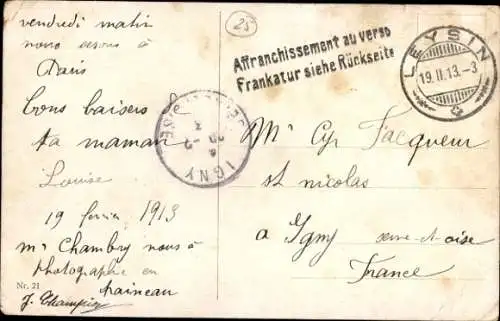 vendredi matin
nous serons à
Paris
bons baisers
ta maman
Louise
19 février 1913
Mr Chambry nous à
photographié en
traineau
Nr. 21
25
Affranchissement au verso
Frankatur siehe Rückseite
LEYSIN
19.II.13.-3
IGNY
SEINE-ET-OISE
Mr Cyr Jacqueur
st nicolas
a Igny Seine-et-Oise
France